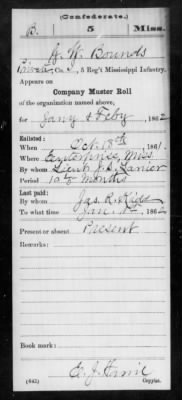 (Confederate.)
B. 5 Miss.
J. W. Bounds
Private, Co. I, 5 Reg't Mississippi Infantry.
Appears on
Company Muster Roll
of the organization named above,
for Jany & Feby, 1862
Enlisted:
When Oct. 18th, 1861.
Where Enterprise, Miss
By whom Lieut. J. S. Lanier
Period 12 months
Last paid:
By whom Jas. R.
To what time Jan. 1st, 1862
Present or absent Present
Remarks:
Book mark:
(642) Copyist.